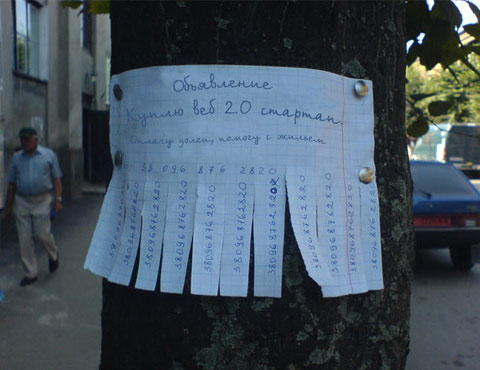 Объявление
Куплю веб 2.0 стартап.
Оплачу услуги, помогу с жильем
38 096 876 2820
380968762820
380968762820
380968762820
380968762820
380968762820
380968762820
380968762820
380968762820
380968762820
380968762820